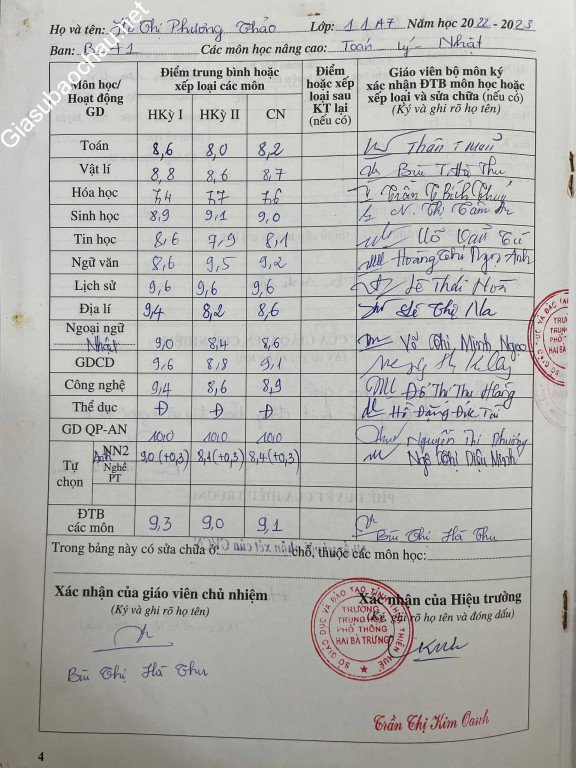 Giasubaochau.net
Họ và tên: Thị Phương Thảo Lớp: 11A7 Năm học 2022 - 2023
Ban: B+1 Các môn học nâng cao: Toán - Lý - Nhật
Môn học/ Hoạt động GD
Điểm trung bình hoặc xếp loại các môn
HKỳ I HKỳ II CN
Điểm hoặc xếp loại sau KT lại (nếu có)
Giáo viên bộ môn ký xác nhận ĐTB môn học hoặc xếp loại và sửa chữa (nếu có)
(Ký và ghi rõ họ tên)
Toán 8,6 8,0 8,2 Thân
Vật lí 8,8 8,6 8,7 Bùi T. Hà Thu
Hóa học 7,4 7,7 7,6 Trần T Bích Thuỷ
Sinh học 8,9 9,1 9,0 N. Thị Tâm
Tin học 8,6 7,9 8,1 Võ Văn Tú
Ngữ văn 8,6 9,5 9,2 Hoàng Thị Ngọc Anh
Lịch sử 9,6 9,6 9,6 Lê Thái Hoà
Địa lí 9,4 8,2 8,6 Lê Thị Na
Ngoại ngữ
Nhật 9,0 8,4 8,6 Võ Thị Minh Ngọc
GDCD 9,6 8,8 9,1
Công nghệ 9,4 8,6 8,9 Đỗ Thị Thu Hằng
Thể dục Đ Đ Đ Hồ Đăng Đức Tài
GD QP-AN 10,0 10,0 10,0 Nguyễn Thị Phương
Tự chọn
Anh NN2 9,0 (+0,3) 8,1 (+0,3) 8,4 (+0,3) Ngô Thị Diệu Minh
Nghề PT
ĐTB các môn 9,3 9,0 9,1 Bùi Thị Hà Thu
Trong bảng này có sửa chữa ở: chỗ, thuộc các môn học:
Xác nhận của giáo viên chủ nhiệm
(Ký và ghi rõ họ tên)
Bùi Thị Hà Thu
Xác nhận của Hiệu trưởng
(Ký, ghi rõ họ tên và đóng dấu)
SỞ GIÁO DỤC VÀ ĐÀO TẠO TỈNH THỪA THIÊN HUẾ
TRƯỜNG
TRUNG HỌC
PHỔ THÔNG
HAI BÀ TRƯNG
Trần Thị Kim Oanh
TRƯỜNG
TRUNG
PHỔ TH
HAI BÀ
4